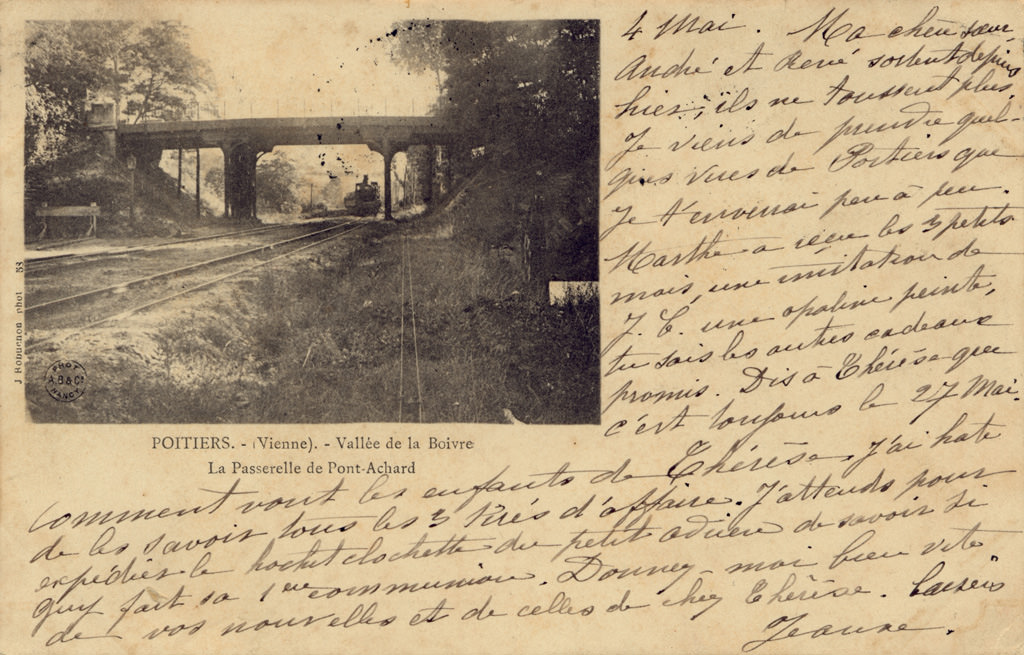 4 Mai. Ma chère sœur,
André et René sortent depuis
hier, ils ne toussent plus.
Je viens de prendre quel-
ques vues de Poitiers que
je t'enverrai peu à peu.
Marthe a reçu les 3 petits
mais, une imitation de
J. C. une opaline peinte,
tu sais les autres cadeaux
promis. Dis à Thérèse que
c'est toujours le 27 Mai.
J Robuchon phot 53
PHOT
A.B & Cie
NANCY
POITIERS. - (Vienne). - Vallée de la Boivre
La Passerelle de Pont-Achard
Comment vont les enfants de Thérèse, j'ai hate
de les savoir tous les 3 tirés d'affaire. J'attends pour
expédier le hochet clochette du petit Adrien de savoir si
Guy fait sa 1ère communion. Donnez-moi bien vite
de vos nouvelles et de celles de chez Thérèse. Baisers
Jeanne.